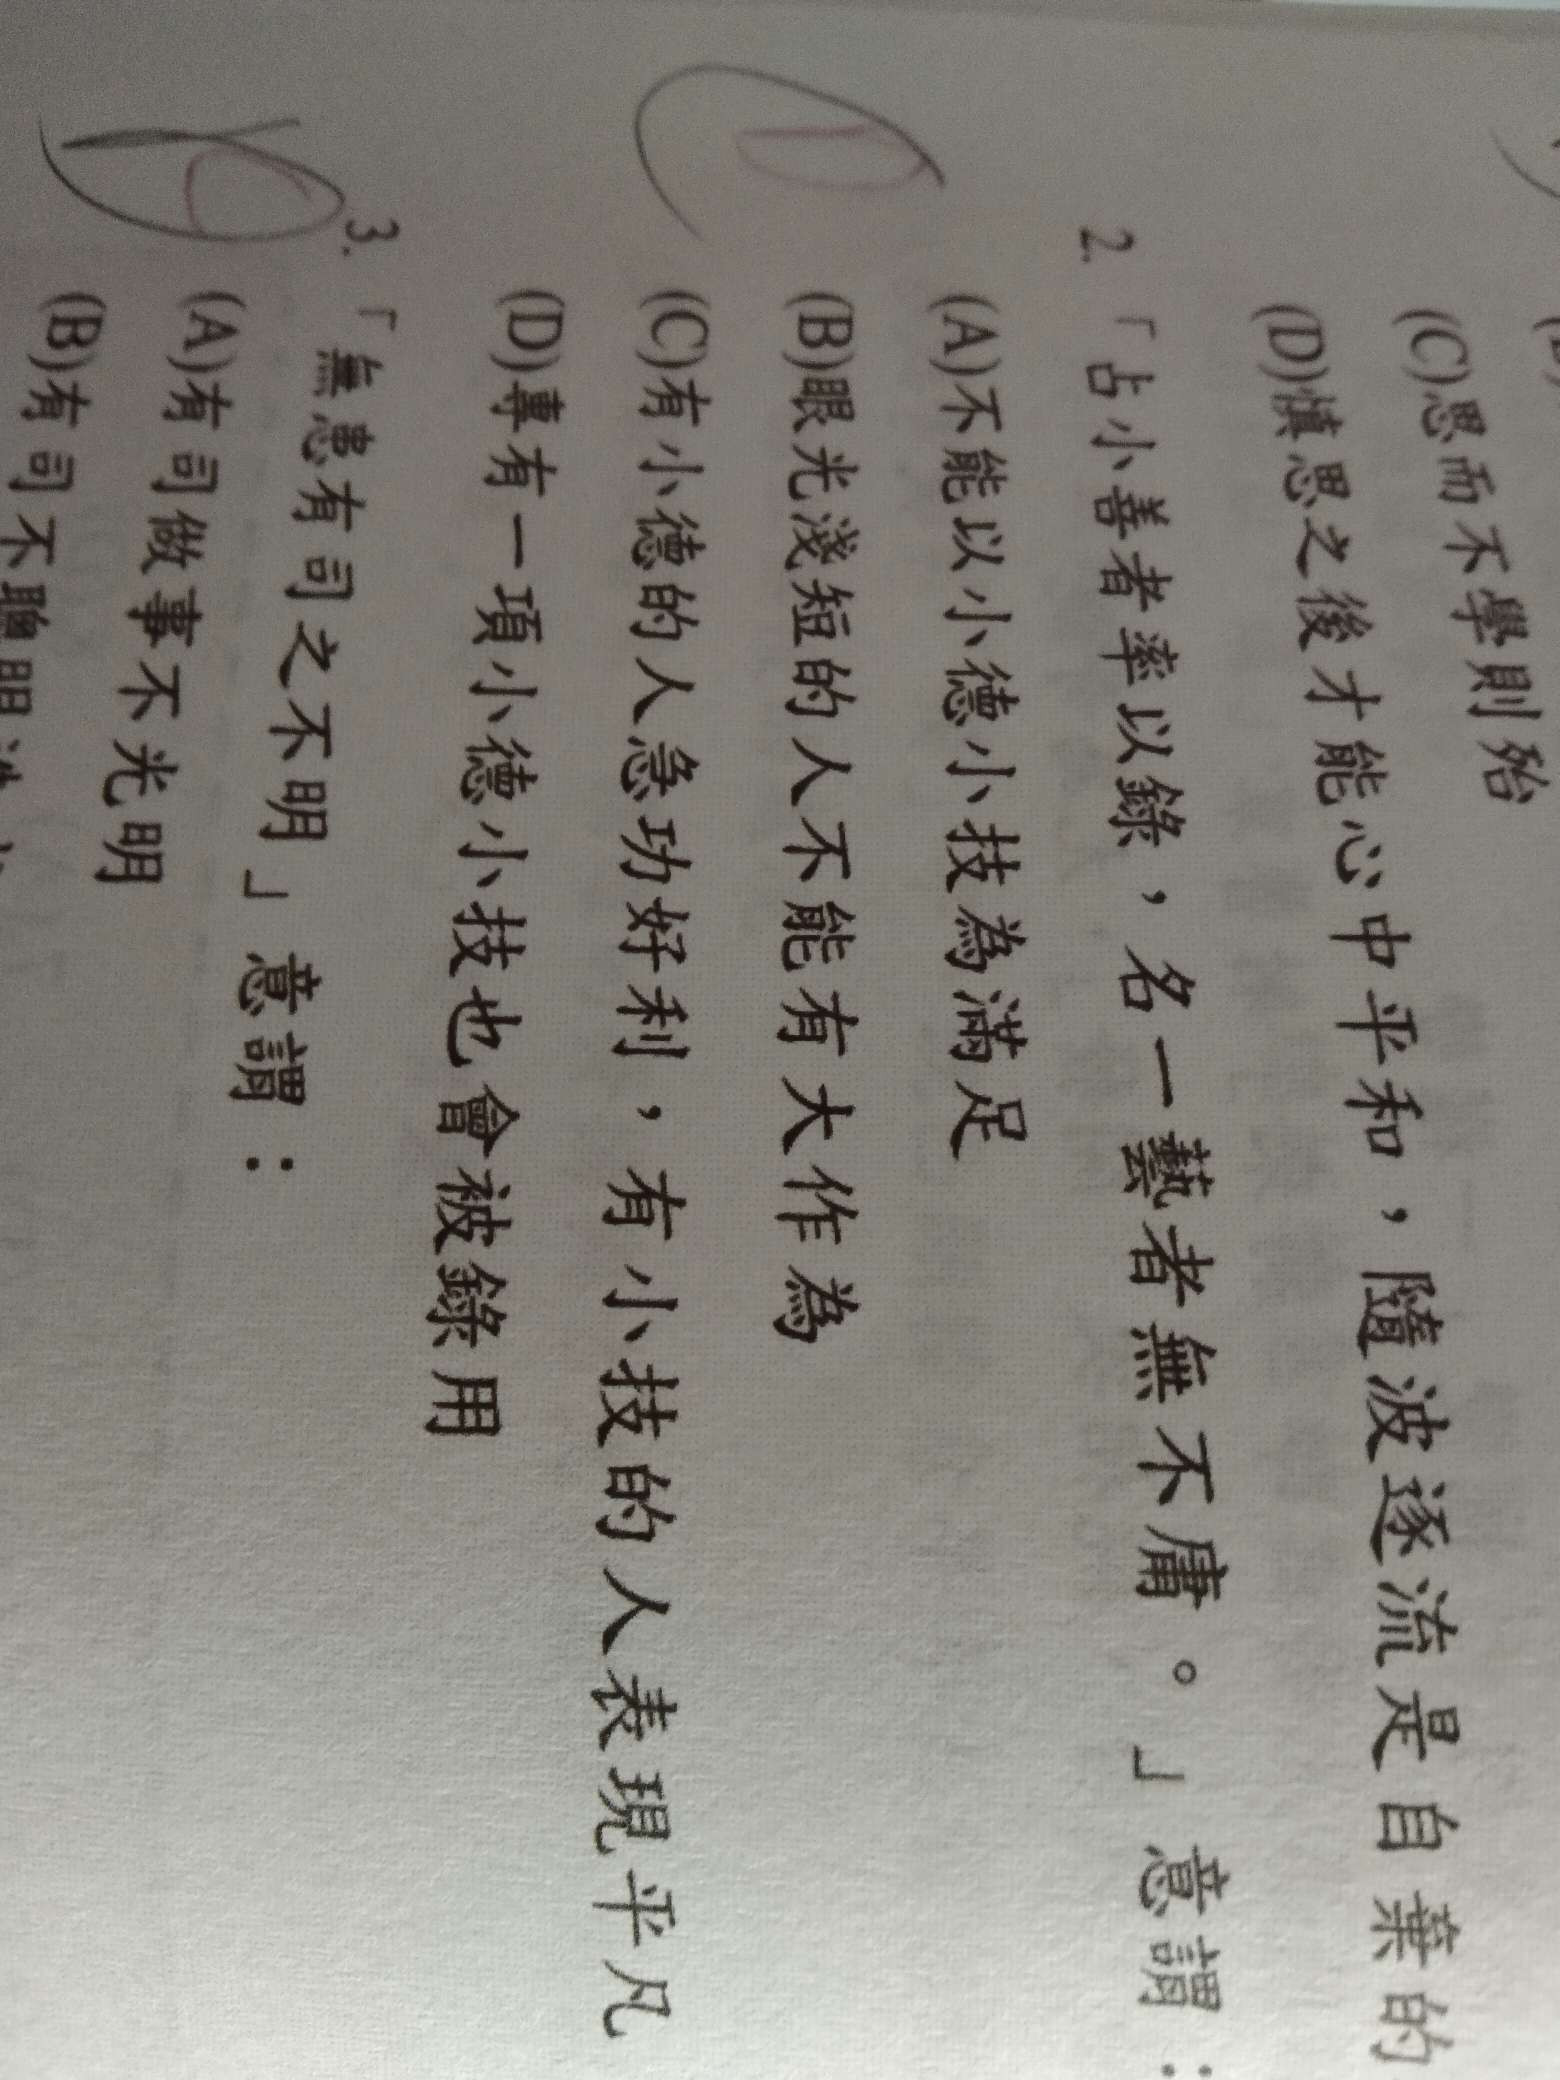 (C)思而不學則殆
(D)慎思之後才能心中平和，隨波逐流是自棄的
2.「占小善者率以錄，名一藝者無不庸。」意謂：
(A)不能以小德小技為滿足
(B)眼光淺短的人不能有大作為
(C)有小德的人急功好利，有小技的人表現平凡
(D)專有一項小德小技也會被錄用
3.「無患有司之不明」意謂：
(A)有司做事不光明
(B)有司不聰明